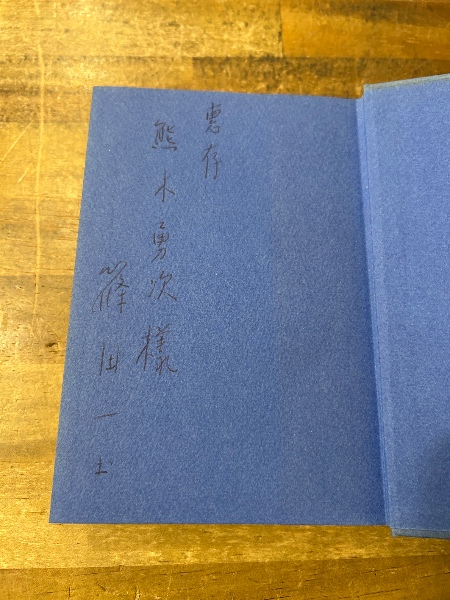 恵存
熊木勇次様
篠田一士